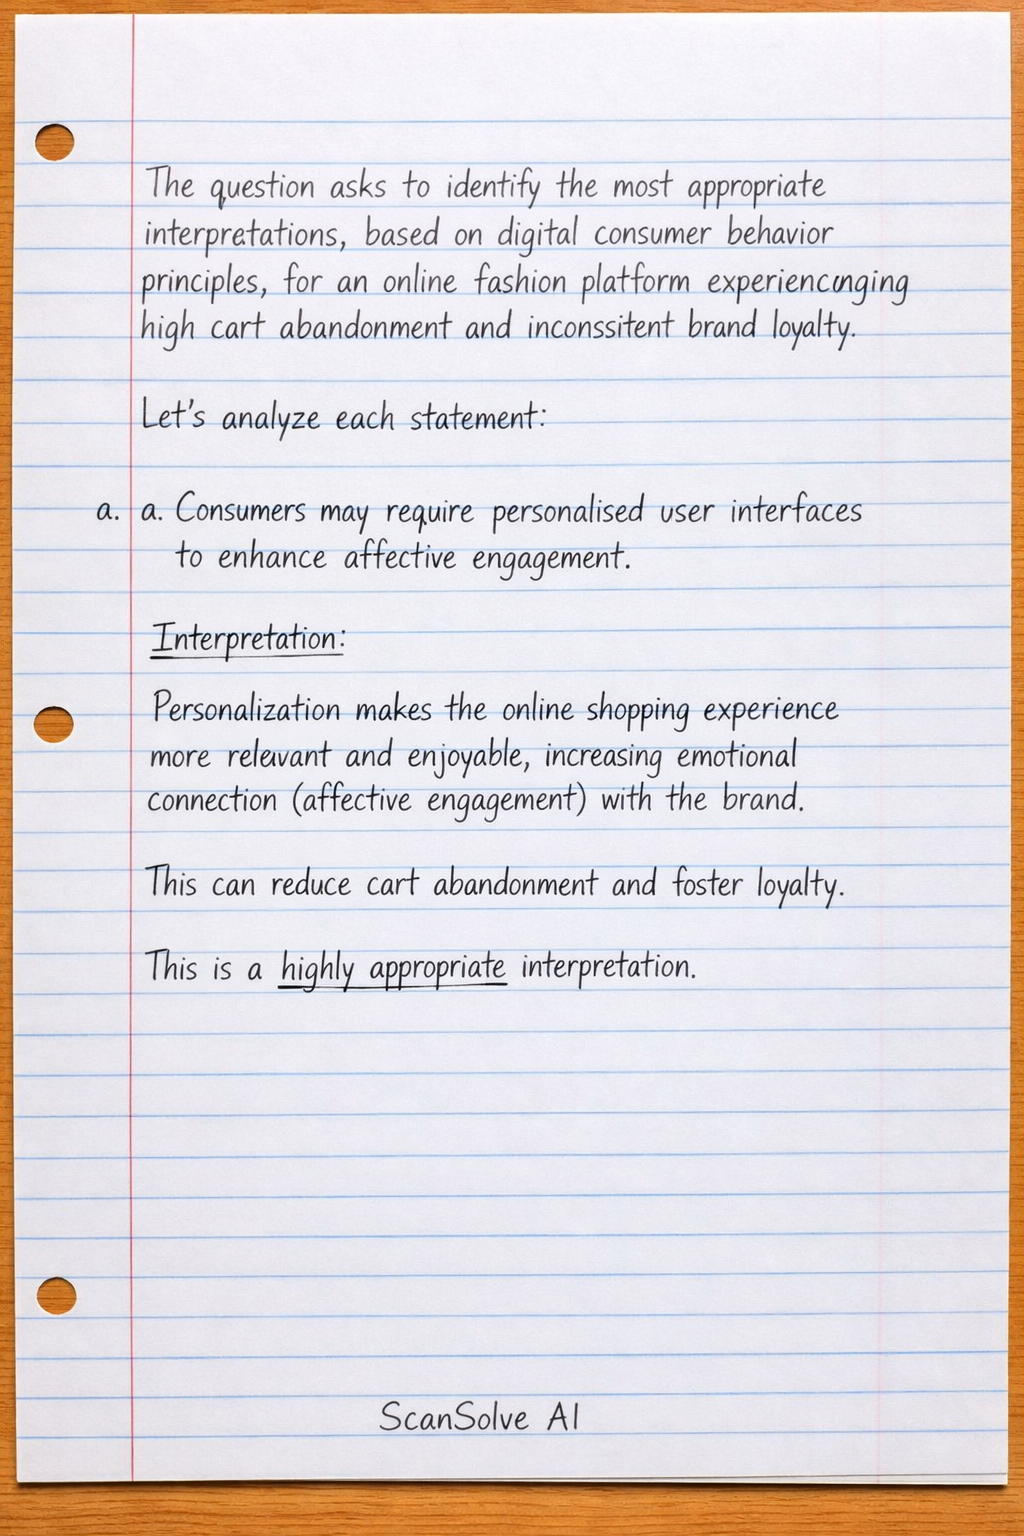 The question asks to identify the most appropriate
interpretations, based on digital consumer behavior
principles, for an online fashion platform experiencinging
high cart abandonment and inconssitent brand loyalty.
Let's analyze each statement:
a. a. Consumers may require personalised user interfaces
to enhance affective engagement.
Interpretation:
Personalization makes the online shopping experience
more relevant and enjoyable, increasing emotional
connection (affective engagement) with the brand.
This can reduce cart abandonment and foster loyalty.
This is a highly appropriate interpretation.
ScanSolve AI